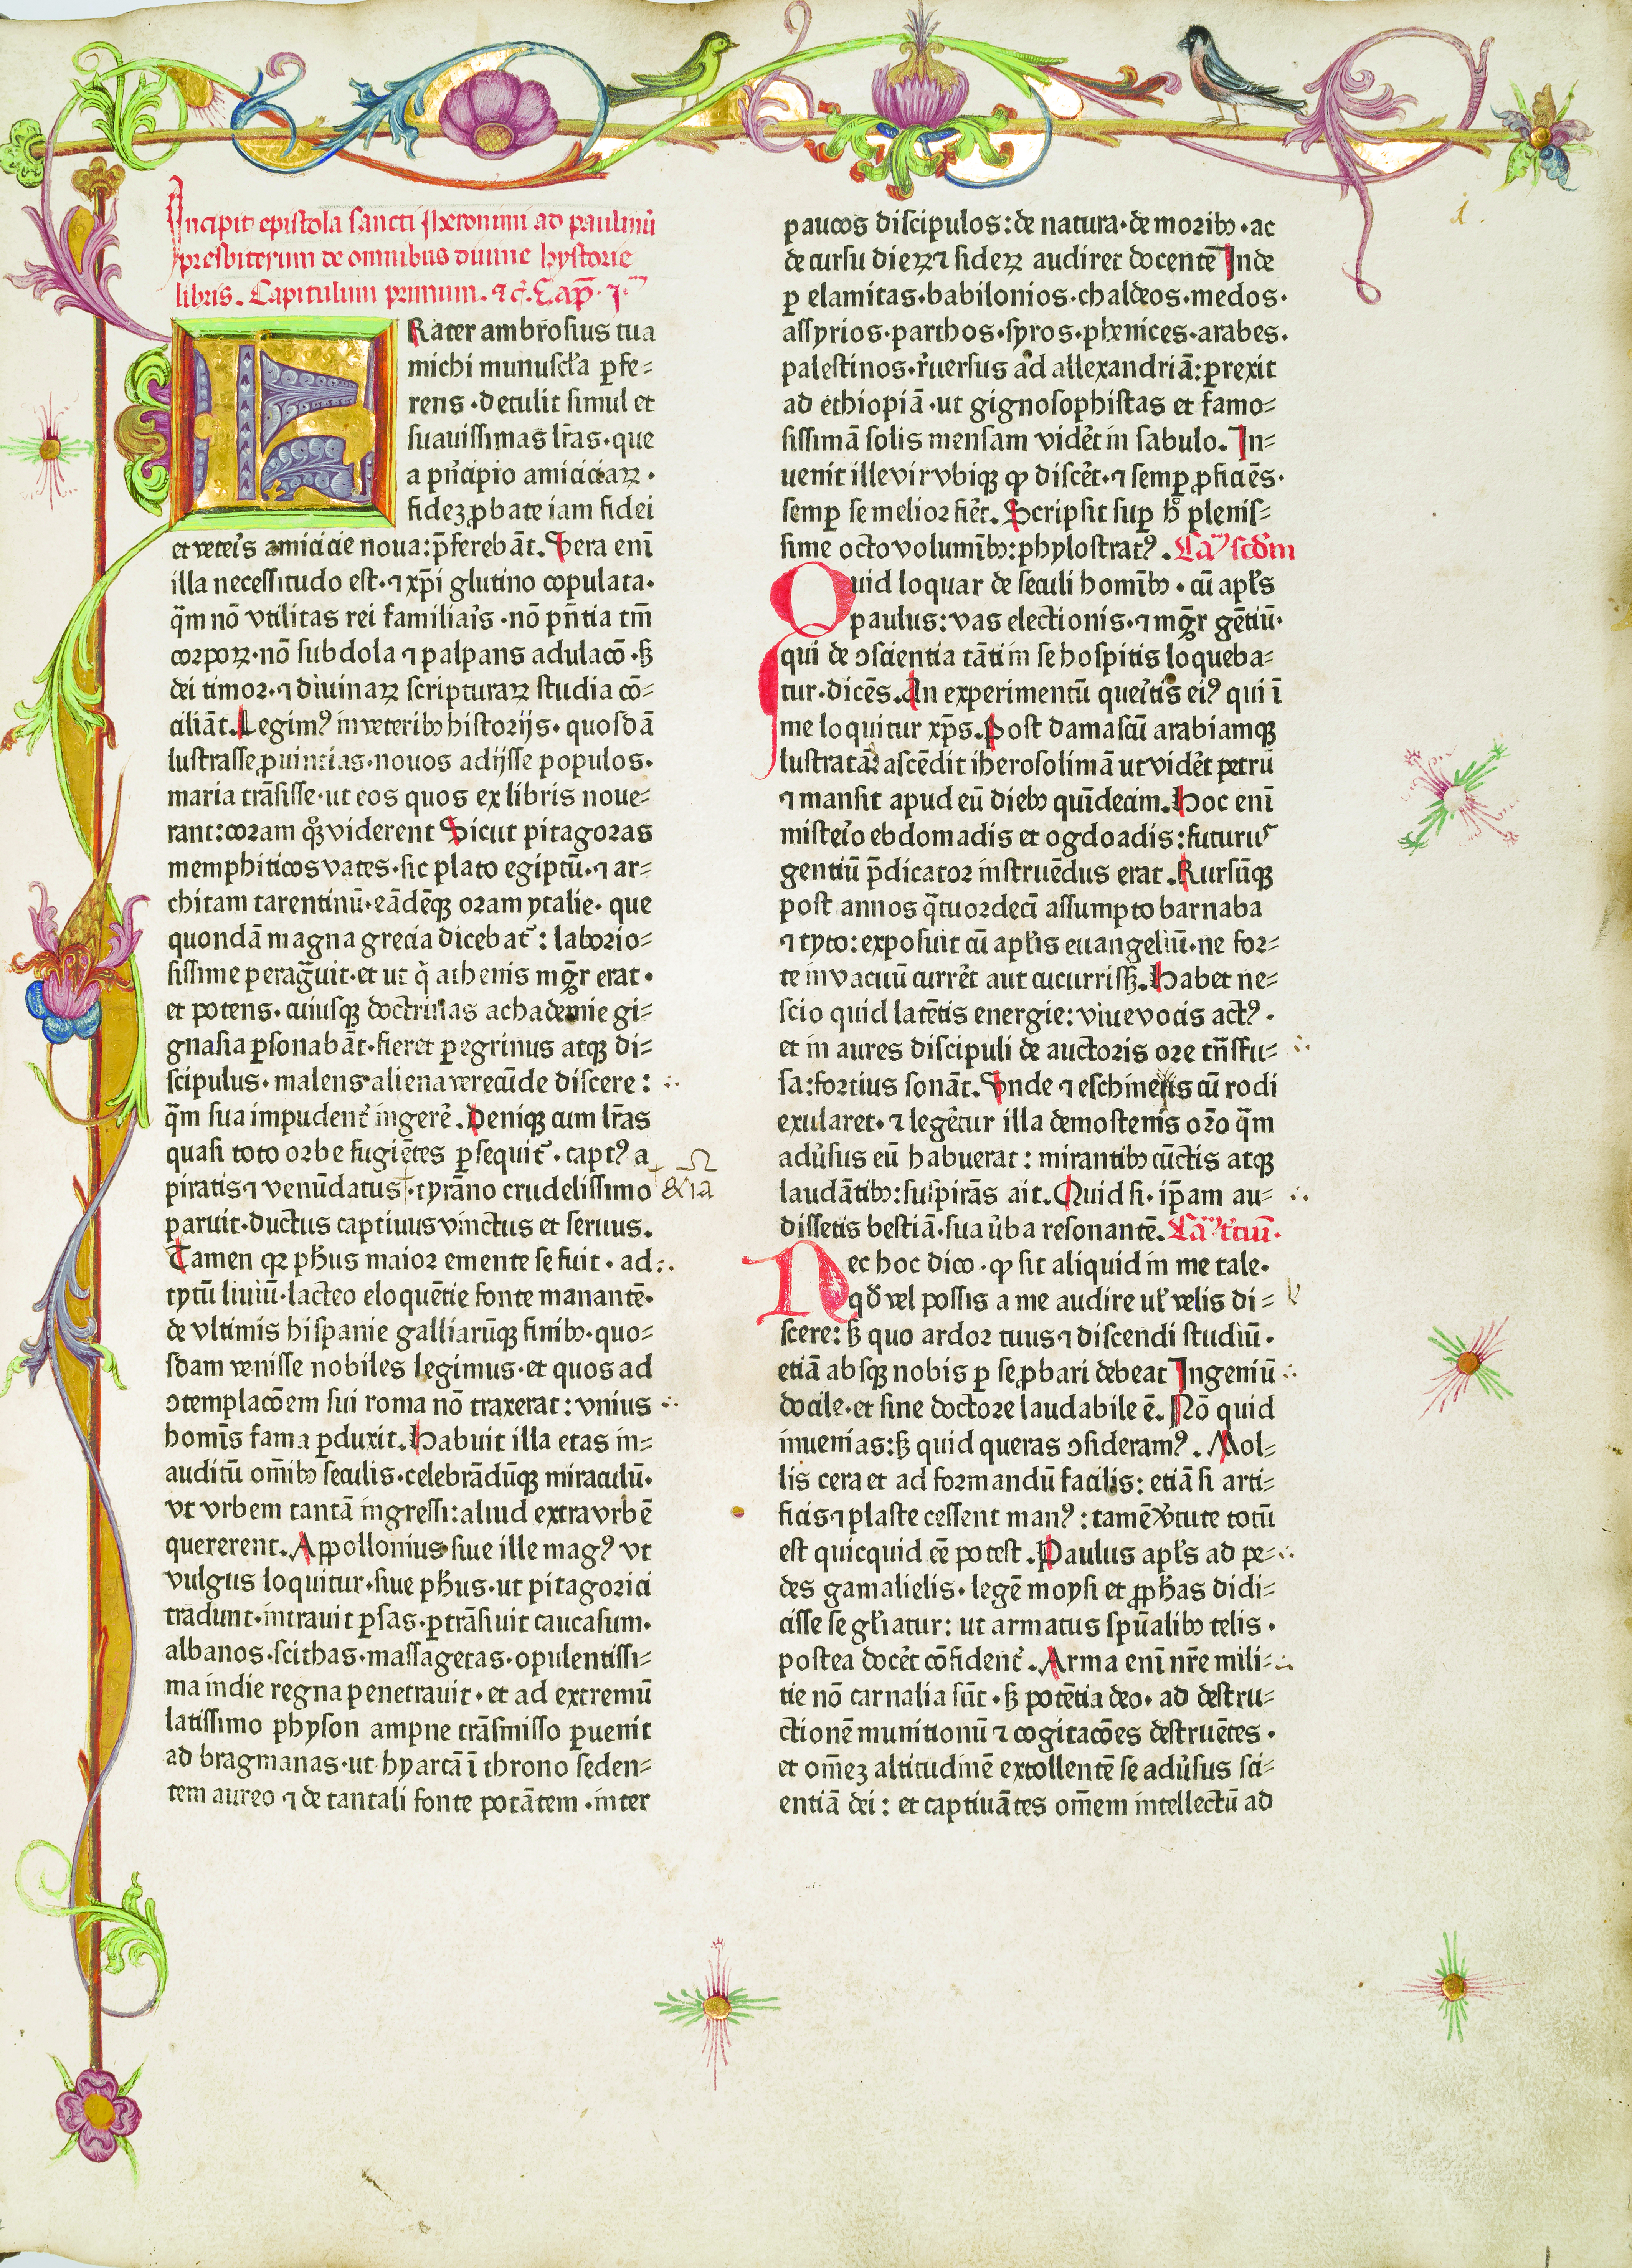 Incipit epistola sancti iheronimi ad paulinū
presbiterum de omnibus diuine hystorie
libris. Capitulum primum. ⁊ c̄. Cap̄. j.
FRater ambrosius tua
michi munuscl̄a ꝑfe⸗
rens·detulit simul et
suauissimas lr̄as·que
a pn̄cipio amiciciaꝝ·
fidez ꝓbate iam fidei
et veteīs amicicie noua: p̄ferebāt. Uera eni̅
illa necessitudo est·⁊ xp̄i glutino copulata·
q̄m nō vtilitas rei familiaīs·nō pn̄tia tm̄
corpoꝝ·nō subdola ⁊ palpans adulacō·sꝫ
dei timor·⁊ diuinaꝝ scripturaꝝ studia cō⸗
ciliāt. Legimꝰ in veteribꝫ historijs·quosdā
lustrasse ꝓuintias·nouos adijsse populos·
maria trāsisse·ut eos quos ex libris noue⸗
rant: coram qͦꝫ viderent Sicut pitagoras
memphiticos vates·sic plato egiptū·⁊ ar⸗
chitam tarentinū·eādēqꝫ oram ytalie·que
quondā magna grecia dicebat᷑: laborio⸗
sissime peragᷓuit·et ut qͥ athenis mgr̄ erat·
et potens·cuiusqꝫ doctrinas achademie gi⸗
gnasia ꝑsonabāt·fieret ꝑegrinus atqꝫ di⸗
scipulus·malens aliena verecūde discere:
q̄m sua impudent᷑ ingerē. Deniqꝫ cum lr̄as
quasi toto orbe fugiētes ꝑsequit᷑·captꝰ a
piratis ⁊ venūdatus·tyrāno crudelissimo
paruit·ductus captiuus vinctus et seruus.
Tamen qꝛ ph̄us maior emente se fuit·ad
tytū liuiū·lacteo eloquētie fonte manantē·
de vltimis hispanie galliarūqꝫ finibꝫ·quo⸗
sdam venisse nobiles legimus·et quos ad
ↄtemplacōem sui roma nō traxerat: vnius
homīs fama ꝑduxit. Habuit illa etas in⸗
auditū om̄ibꝫ seculis·celebrādūqꝫ miraculū·
vt vrbem tantā ingressi: aliud extra vrbē
quererent. Appollonius siue ille magꝰ vt
vulgus loquitur·siue ph̄us·ut pitagorici
tradunt·intrauit ꝑsas·ꝑtrāsiuit caucasum·
albanos·scithas·massagetas·opulentissi⸗
ma indie regna penetrauit·et ad extremū
latissimo physon ampne trāsmisso ꝑuenit
ad bragmanas·ut hyarcā ī throno seden⸗
tem aureo ⁊ de tantali fonte potātem·inter
paucos discipulos: de natura·de moribꝫ·ac
de cursu dieꝝ ⁊ sideꝝ audiret docentē Inde
ꝑ elamitas·babilonios·chaldeos·medos·
assyrios·parthos·syros·phenices·arabes·
palestinos·r̄uersus ad allexandriā: ꝑrexit
ad ethiopiā·ut gignosophistas et famo⸗
sissimā solis mensam videt᷑ in sabulo. In⸗
uenit ille vir vbiqꝫ ꝙ discet᷑·⁊ semꝑ ꝓficiēs·
semꝑ se melior fiet᷑. Scripsit suꝑ hͦ plenis⸗
sime octo voluminībꝫ: phylostratꝰ. Cam scdm
Quid loquar de seculi homībꝫ·cū apl̄s
paulus: vas electionis·⁊ mgr̄ gētiū·
qui de ↄscientia tāti in se hospitis loqueba⸗
tur·dicēs. An experimentū queīt̄is eiꝰ qui ī
me loquitur xp̄s. Post damascū arabiamqꝫ
lustratā: ascēdit iherosolimā ut videt᷑ petrū
⁊ mansit apud eū diebꝫ quīdecim. Hoc eni̅
misteīo ebdomadis et ogdoadis: futurus
gentiū p̄dicator instruēdus erat. Rursūqꝫ
post annos qᷓtuordecī assumpto barnaba
⁊ tyto: exposuit cū apl̄is euangeliū·ne for⸗
te in vacuū curret᷑ aut cucurrissꝫ. Habet ne⸗
scio quid latētis energie: viue vocis actꝰ·
et in aures discipuli de auctoris ore trn̄sfu⸗
sa: fortius sonāt. Unde ⁊ eschines cū rodi
exularet·⁊ leget᷑ur illa demostenis oro̅ q̄m
adu̓sus eū habuerat: mirantibꝫ cūctis atqꝫ
laudātibꝫ: suspirās ait. Quid si·ip̄am au⸗
dissetis bestiā·sua u̓ba resonantē. Cam tciū·
Nec hoc dico·ꝙ sit aliquid in me tale·
qd̄ vel possis a me audire ul̄ velis di⸗
scere: sꝫ quo ardor tuus ⁊ discendi studiū·
etiā absqꝫ nobis ꝑ se ꝓbari debeat Ingeniū
docile·et sine doctore laudabile ē. Nō quid
inuenias: sꝫ quid queras ↄsideramꝰ. Mol⸗
lis cera et ad formandū facilis: etiā si arti⸗
ficis ⁊ plaste cessent manꝰ: tamē v̓tute totū
est quicquid ēē potest. Paulus apl̄s ad pe⸗
des gamalielis·legē moysi et ꝓph̄as didi⸗
cisse se gl̄iatur: ut armatus spūalibꝫ telis·
postea docet᷑ cōfident᷑. Arma eni̅ nr̄e mili⸗
tie nō carnalia sūt·sꝫ potētia deo·ad destru⸗
ctionē munitionū ⁊ cogitacōes destruētes·
et om̄ez altitudinē extollentē se adu̓sus sci⸗
entiā dei: et captiuātes om̄em intellectū ad